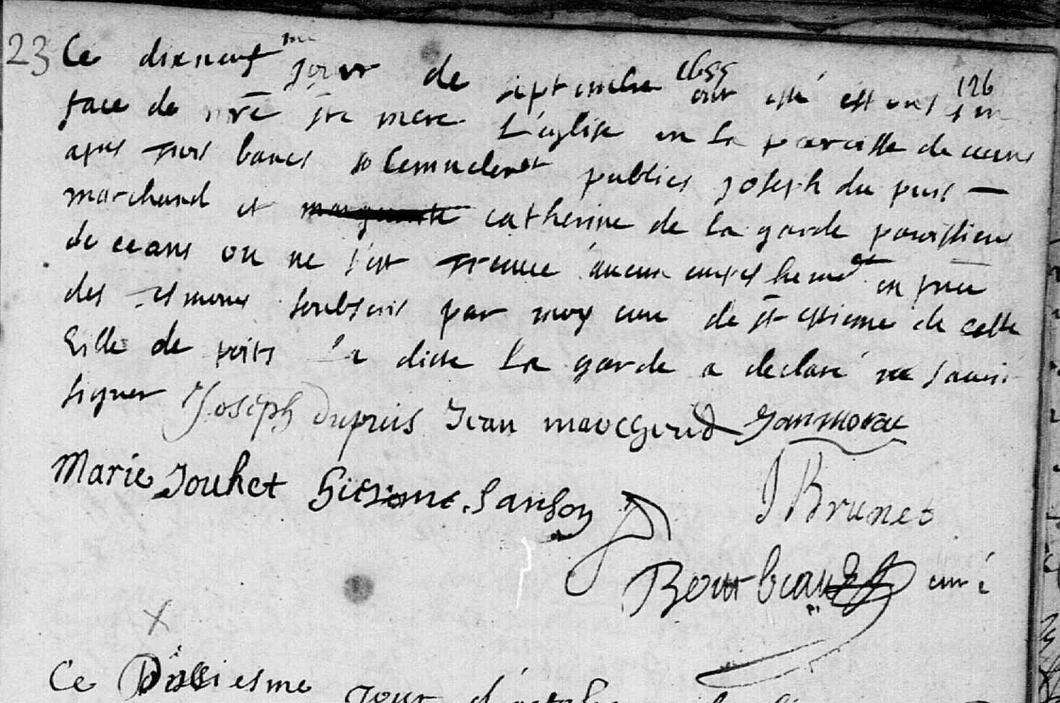 23 Ce dixneuf me jour de septembre 1655 ont esté espousé en 126
face de nre ste mere L'église en La paroisse de ceans
apres trois bancs solemnelemt publies joseph du puis —
marchand et catherine de la garde paroissiens
de ceans ou ne s'est treuve aucun empeschemt et en pnce
des tesmoins soubsits par moy curé de st estienne de cette
Ville de poits La dicte La garde a declaré ne scavoir
signer Joseph Dupuis Jean marchand
Marie Jouhet Sanson J Brunet
Bourbeau curé
X
Ce Dissiesme Jour d'octobre